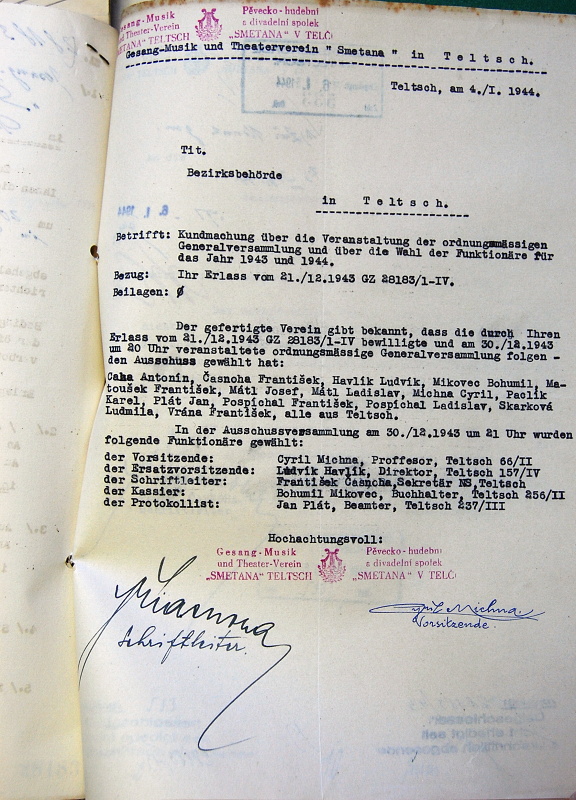 Gesang-Musik Pěvecko-hudební
und Theater-Verein a divadelní spolek
SMETANA" TELTSCH „SMETANA" V TELČI
Gesang-Musik und Theaterverein " Smetana " in Teltsch.
Teltsch, am 4./I. 1944.
Tit.
Bezirksbehörde
in Teltsch.
6. I. 1944
Betrifft: Kundmachung über die Veranstaltung der ordnungsmässigen
Generalversammlung und über die Wahl der Funktionäre für
das Jahr 1943 und 1944.
Bezug: Ihr Erlass vom 21./12.1943 GZ 28183/1-IV.
Beilagen: Ø
Der gefertigte Verein gibt bekannt, dass die durch Ihren
Erlass vom 21./12.1943 GZ 28183/1-IV bewilligte und am 30./12.1943
um 20 Uhr veranstaltete ordnungsmässige Generalversammlung folgen -
den Ausschuss gewählt hat:
Caha Antonín, Časnoha František, Havlík Ludvík, Mikovec Bohumil, Ma-
toušek František, Mátl Josef, Mátl Ladislav, Michna Cyril, Paolík
Karel, Plát Jan, Pospíchal František, Pospíchal Ladislav, Skarková
Ludmila, Vrána František, alle aus Teltsch.
In der Ausschussversammlung am 30./12.1943 um 21 Uhr wurden
folgende Funktionäre gewählt:
der Vorsitzende: Cyril Michna, Proffesor, Teltsch 66/II
der Ersatzvorsitzende: Ludvík Havlík, Direktor, Teltsch 157/IV
der Schriftleiter: František Časnoha,Sekretár NS,Teltsch
der Kassier: Bohumil Mikovec, Buchhalter, Teltsch 256/II
der Protokollist: Jan Plát, Beamter, Teltsch 237/III
Hochachtungsvoll:
Gesang-Musik Pěvecko-hudební
und Theater-Verein a divadelní spolek
„SMETANA" TELTSCH „SMETANA" V TELČI
Cyril Michna
Vorsitzende.
Schriftleiter.